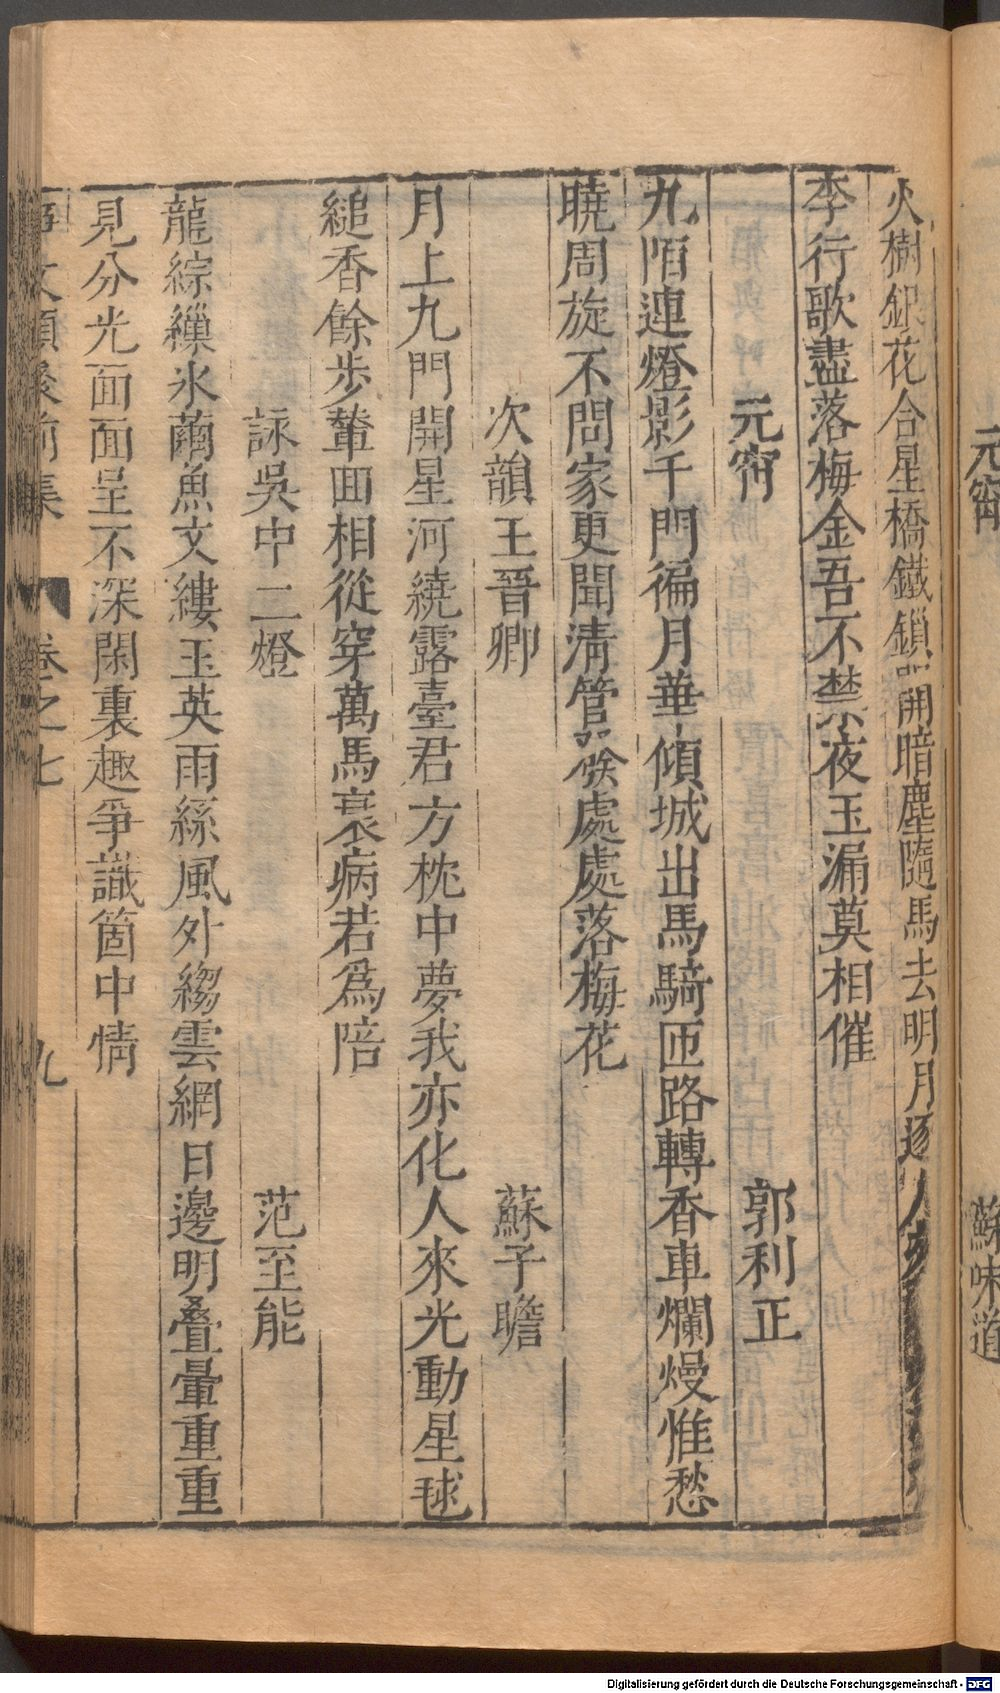 元宵 蘇味道
火樹銀花合星橋鐵鎖開暗塵隨馬去明月逐人
李行歌盡落梅金吾不禁夜玉漏莫相催
元宵 郭利正
九陌連燈影千門徧月華傾城出馬騎匝路轉香車爛熳惟愁
曉周旋不問家更聞淸管發處處落梅花
次韻王晉卿 蘇子瞻
月上九門開星河繞露臺君方枕中夢我亦化人來光動星毬
縋香餘步輦回相從穿萬馬衰病若爲陪
詠吳中二燈 范至能
龍綜繅氷繭魚文縷玉英雨絲風外縐雲網日邊明疊暈重重
見分光面面呈不深閑裏趣爭識箇中情
事文類聚前集 卷之七 九
Digitalisierung gefördert durch die Deutsche Forschungsgemeinschaft - DFG